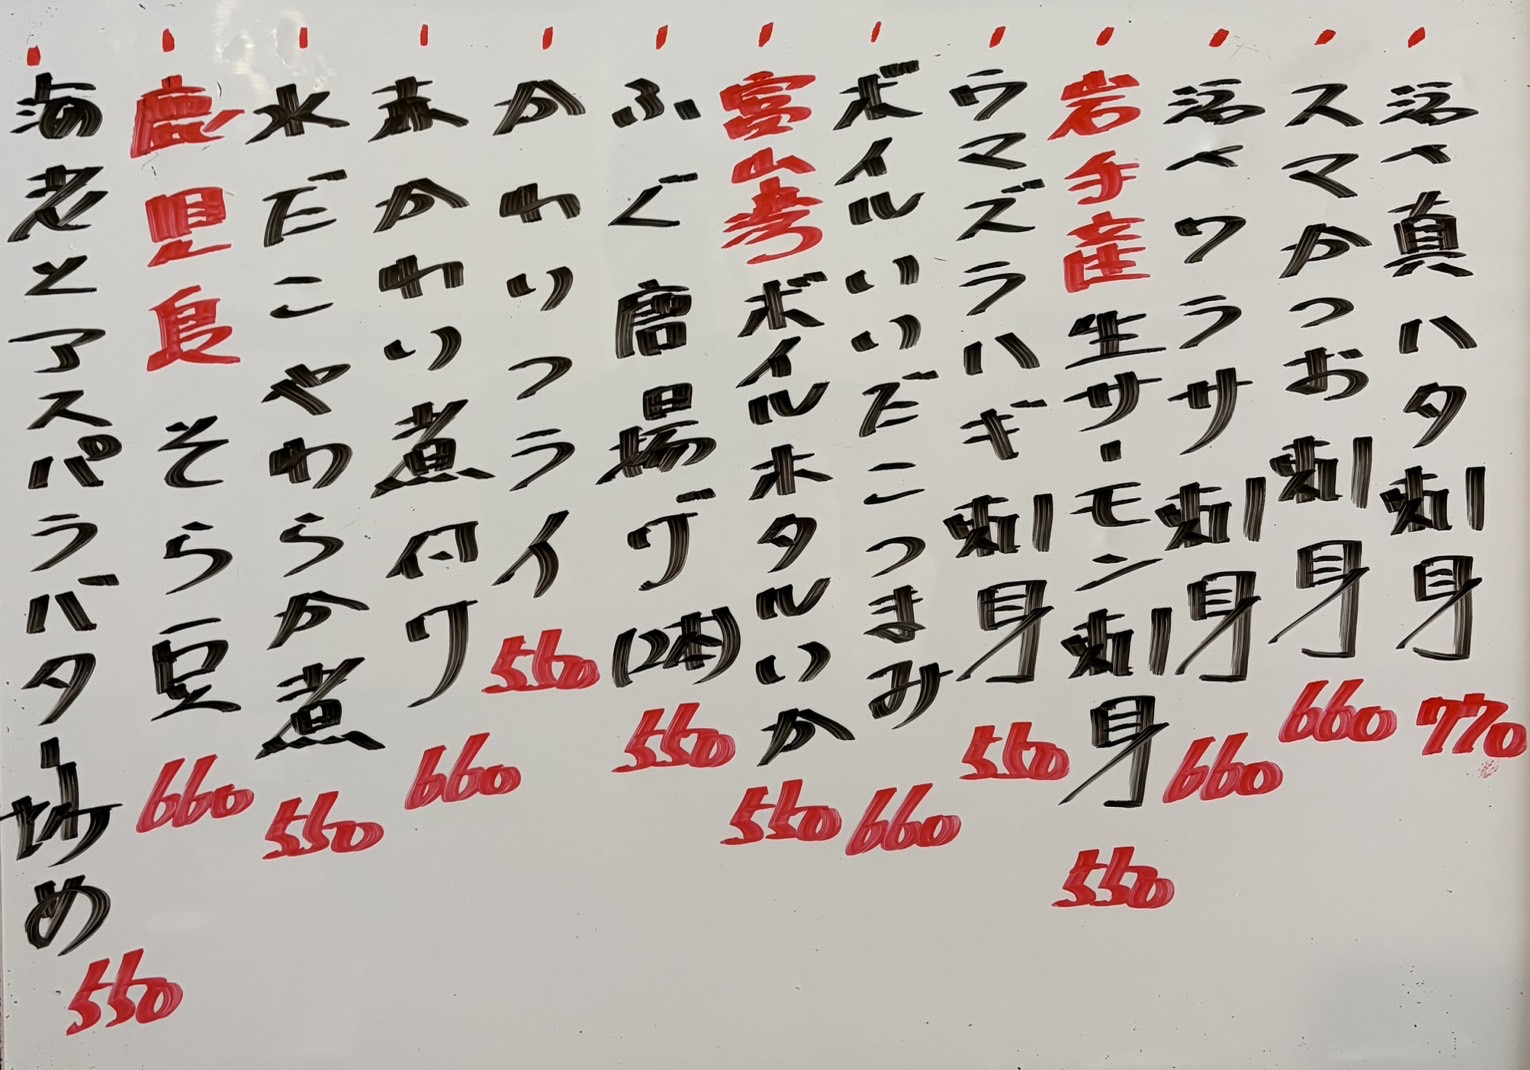 活〆真ハタ刺身 770
スマかつお刺身 660
活〆ワラサ刺身 660
岩手産生サーモン刺身 550
ウマズラハギ刺身 550
ボイルいいだこつまみ 660
富山産ボイルホタルいか 550
ふぐ唐揚ゲ(2本) 550
かれいフライ 550
赤かれい煮付ケ 660
水だこやわらか煮 550
鹿児島そら豆 660
海老とアスパラバター炒め 550